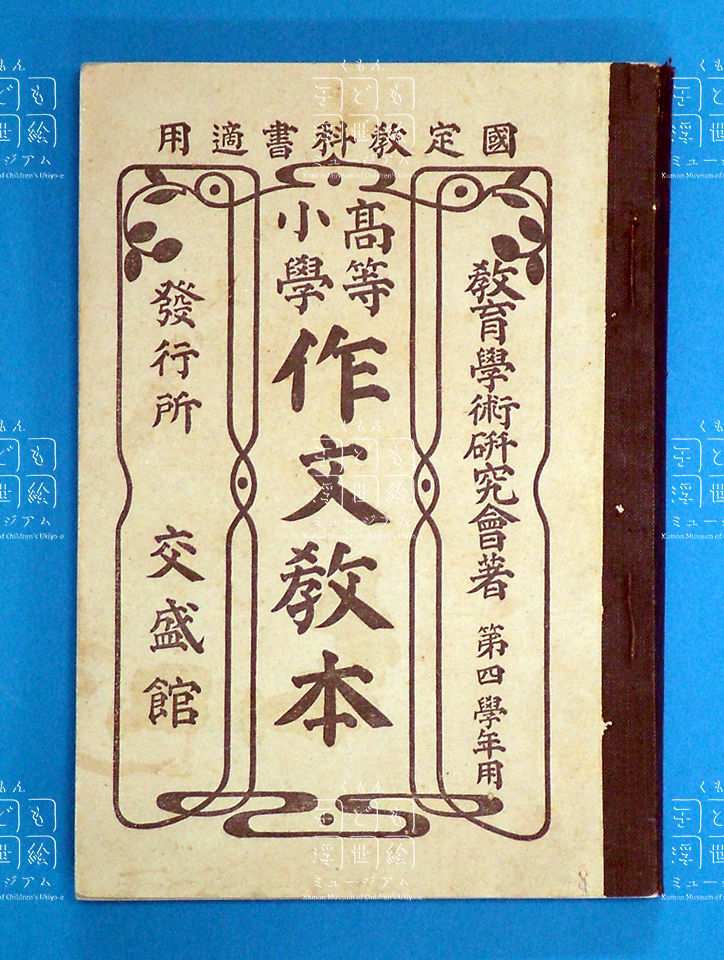 國定教科書適用
教育學術硏究會著 第四學年用
高等小學 作文教本
發行所 交盛館
くもん
子ども
浮世絵
ミュージアム
Kumon Museum of Children's Ukiyo-e